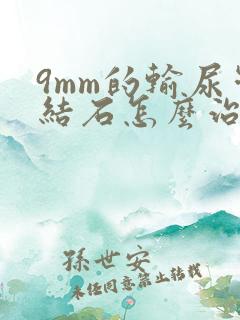 9mm的輸尿
結石怎麼治
孫世安
未任同意禁止转载